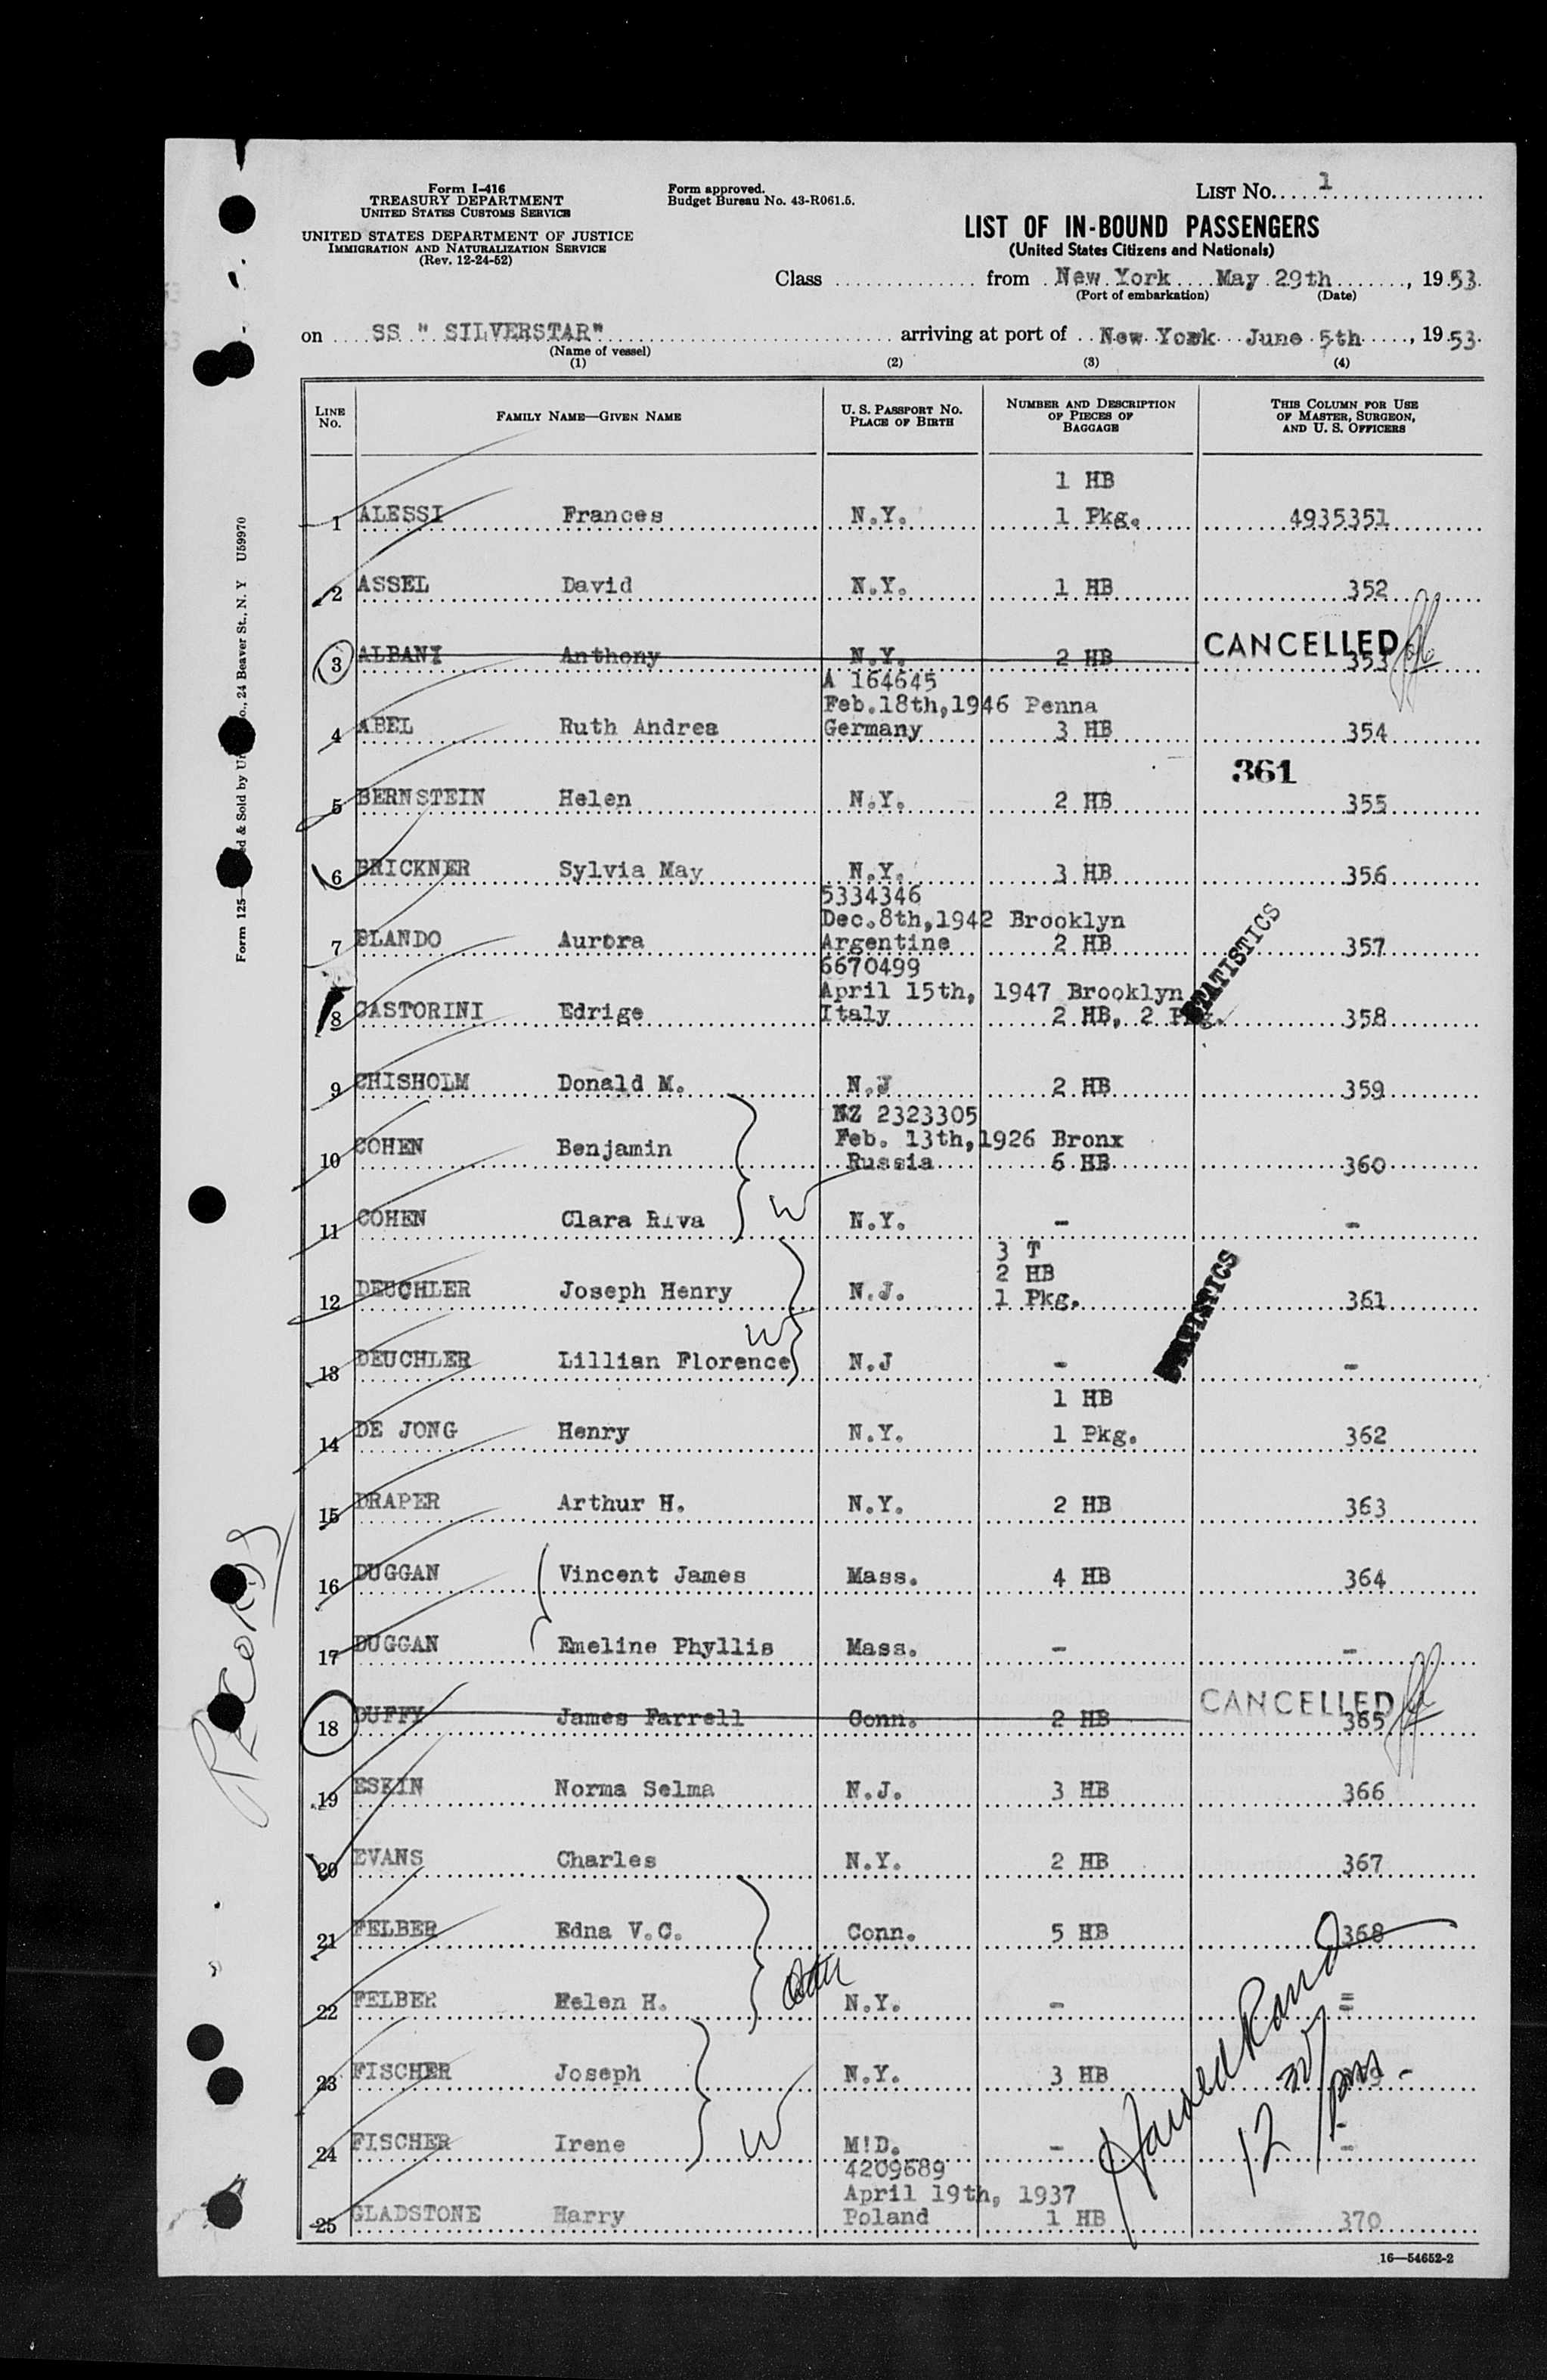 Form I-416
TREASURY DEPARTMENT
UNITED STATES CUSTOMS SERVICE
UNITED STATES DEPARTMENT OF JUSTICE
IMMIGRATION AND NATURALIZATION SERVICE
(Rev. 12-24-52)
Form approved.
Budget Bureau No. 43-R061.5.
LIST NO. 1
LIST OF IN-BOUND PASSENGERS
(United States Citizens and Nationals)
Class from New York May 29th, 1953.
(Port of embarkation) (Date)
on SS " SILVERSTAR" arriving at port of New York June 5th, 1953.
(Name of vessel)
(1) (2) (3) (4)
LINE NO. FAMILY NAME—GIVEN NAME U. S. PASSPORT NO. PLACE OF BIRTH NUMBER AND DESCRIPTION OF PIECES OF BAGGAGE THIS COLUMN FOR USE OF MASTER, SURGEON, AND U. S. OFFICERS
1 HB
1 ALESSI Frances N.Y. 1 Pkg. 4935351
2 ASSEL David N.Y. 1 HB 352
3 ALBANI Anthony N.Y. 2 HB CANCELLED 353
A 164645
Feb.18th,1946 Penna
4 ABEL Ruth Andrea Germany 3 HB 354
361
5 BERNSTEIN Helen N.Y. 2 HB 355
6 BRICKNER Sylvia May N.Y. 3 HB 356
5334346
Dec.8th,1942 Brooklyn
7 BLANDO Aurora Argentine 2 HB 357
6670499
April 15th, 1947 Brooklyn
8 CASTORINI Edrige Italy 2 HB, 2 Pkg. 358
STATISTICS
9 CHISHOLM Donald M. N.J 2 HB 359
NZ 2323305
Feb. 13th,1926 Bronx
10 COHEN Benjamin Russia 6 HB 360
W
11 COHEN Clara Riva N.Y. - -
3 T
2 HB
12 DEUCHLER Joseph Henry N.J. 1 Pkg. 361
W
STATISTICS
13 DEUCHLER Lillian Florence N.J - -
1 HB
14 DE JONG Henry N.Y. 1 Pkg. 362
15 DRAPER Arthur H. N.Y. 2 HB 363
16 DUGGAN Vincent James Mass. 4 HB 364
17 DUGGAN Emeline Phyllis Mass. - -
18 DUFFY James Farrell Conn. 2 HB CANCELLED 365
19 ESKIN Norma Selma N.J. 3 HB 366
20 EVANS Charles N.Y. 2 HB 367
21 FELBER Edna V.C. Conn. 5 HB 368
22 FELBER Helen H. N.Y. - =
23 FISCHER Joseph N.Y. 3 HB
W
24 FISCHER Irene M!D. - -
4209689
April 19th, 1937
25 GLADSTONE Harry Poland 1 HB 370
12 30 pm
16—54652-2
Records
Form 125— & Sold by Co., 24 Beaver St., N. Y U59970